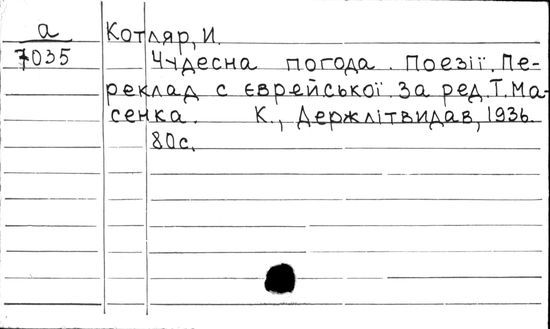 а Котляр, И.
7035 Чудесна погода. Поезії. Пе-
реклад с єврейської. За ред. Т. Ма-
сенка. К., Держлітвидав, 1936.
80с.